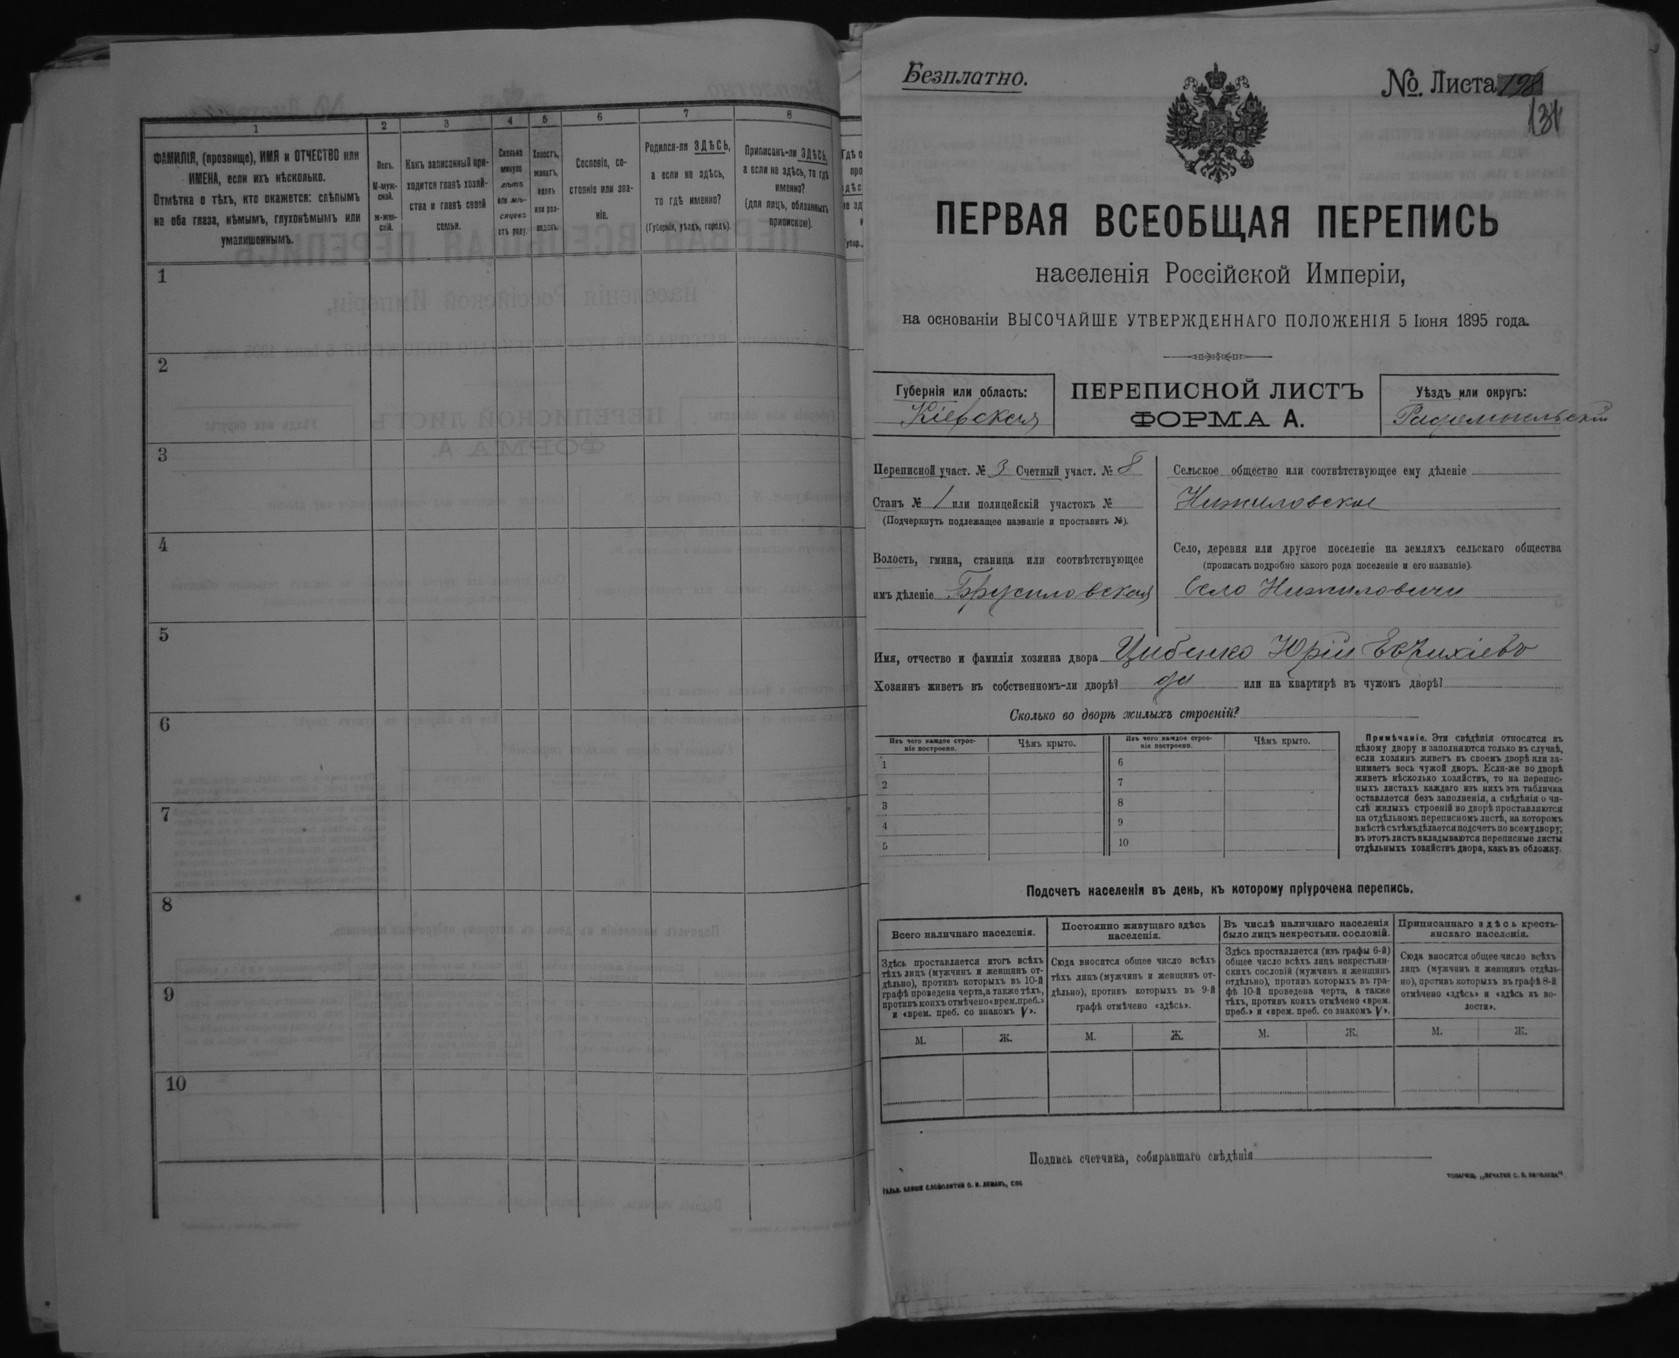 1 2 3 4 5 6 7 8
ФАМИЛІЯ, (прозвище), ИМЯ и ОТЧЕСТВО или
ИМЕНА, если ихъ нѣсколько.
Отмѣтка о тѣхъ, кто окажется: слѣпымъ
на оба глаза, нѣмымъ, глухонѣмымъ или
умалишеннымъ.
Полъ.
М-муж-
ской.
Ж-жен-
скій.
Какъ записанный при-
ходится главѣ хозяй-
ства и главѣ своей
семьи.
Сколько
минуло
лѣтъ
или мѣ-
сяцевъ
отъ роду.
Холостъ,
женатъ,
вдовъ
или раз-
веденъ.
Сословіе, со-
стояніе или зва-
ніе.
Родился-ли ЗДѢСЬ,
а если не здѣсь,
то гдѣ именно?
(Губернія, уѣздъ, городъ).
Приписанъ-ли ЗДѢСЬ,
а если не здѣсь, то гдѣ
именно?
(для лицъ, обязанныхъ
припискою).
1
2
3
4
5
6
7
8
9
10
Безплатно.
№. Листа 198
131
ПЕРВАЯ ВСЕОБЩАЯ ПЕРЕПИСЬ
населенія Россійской Имперіи,
на основаніи ВЫСОЧАЙШЕ УТВЕРЖДЕННАГО ПОЛОЖЕНІЯ 5 Іюня 1895 года.
Губернія или область:
Кіевская
ПЕРЕПИСНОЙ ЛИСТЪ
ФОРМА А.
Уѣздъ или округъ:
Радомысльскій
Переписной участ. № 3 Счетный участ. № 8
Станъ № 1 или полицейскій участокъ №
(Подчеркнуть подлежащее названіе и проставить №).
Волость, гмина, станица или соотвѣтствующее
имъ дѣленіе Брусиловская
Сельское общество или соотвѣтствующее ему дѣленіе
Нижиловское
Село, деревня или другое поселеніе на земляхъ сельскаго общества
(прописать подробно какого рода поселеніе и его названіе).
Село Нижиловичи
Имя, отчество и фамилія хозяина двора Цыбенко Юрій Евтихіевъ
Хозяинъ живетъ въ собственномъ-ли дворѣ? да или на квартирѣ въ чужомъ дворѣ?
Сколько во дворѣ жилыхъ строеній?
Изъ чего каждое строе-
ніе построено.
Чѣмъ крыто.
Изъ чего каждое строе-
ніе построено.
Чѣмъ крыто.
1 6
2 7
3 8
4 9
5 10
Примѣчаніе. Эти свѣдѣнія относятся къ
цѣлому двору и заполняются только въ случаѣ,
если хозяинъ живетъ въ своемъ дворѣ или за-
нимаетъ весь чужой дворъ. Если-же во дворѣ
живетъ нѣсколько хозяйствъ, то на перепис-
ныхъ листахъ каждаго изъ нихъ эта табличка
оставляется безъ заполненія, а свѣдѣнія о чи-
слѣ жилыхъ строеній во дворѣ проставляются
на отдѣльномъ переписномъ листѣ, на которомъ
вмѣстѣ съ тѣмъ дѣлается подсчетъ по всему двору;
въ этотъ листъ вкладываются переписные листы
отдѣльныхъ хозяйствъ двора, какъ въ обложку.
Подсчетъ населенія въ день, къ которому пріурочена перепись.
Всего наличнаго населенія.
Здѣсь проставляется итогъ всѣхъ
тѣхъ лицъ (мужчинъ и женщинъ от-
дѣльно), противъ которыхъ въ 10-й
графѣ проведена черта, а также тѣхъ,
противъ коихъ отмѣчено «врем. преб.»
и «врем. преб. со знакомъ V».
М. Ж.
Постоянно живущаго здѣсь
населенія.
Сюда вносится общее число всѣхъ
тѣхъ лицъ (мужчинъ и женщинъ от-
дѣльно), противъ которыхъ въ 9-й
графѣ отмѣчено «здѣсь».
М. Ж.
Въ числѣ наличнаго населенія
было лицъ некрестьян. сословій.
Здѣсь проставляется (изъ графы 6-й)
общее число всѣхъ лицъ некрестьян-
скихъ сословій (мужчинъ и женщинъ
отдѣльно), противъ которыхъ въ гра-
фѣ 10-й проведена черта, а также
тѣхъ, противъ коихъ отмѣчено «врем.
преб.» и «врем. преб. со знакомъ V».
М. Ж.
Приписаннаго здѣсь кресть-
янскаго населенія.
Сюда вносится общее число всѣхъ
лицъ (мужчинъ и женщинъ отдѣль-
но), противъ которыхъ въ графѣ 8-й
отмѣчено «здѣсь» и «здѣсь въ во-
лости».
М. Ж.
Подпись счетчика, собиравшаго свѣдѣнія